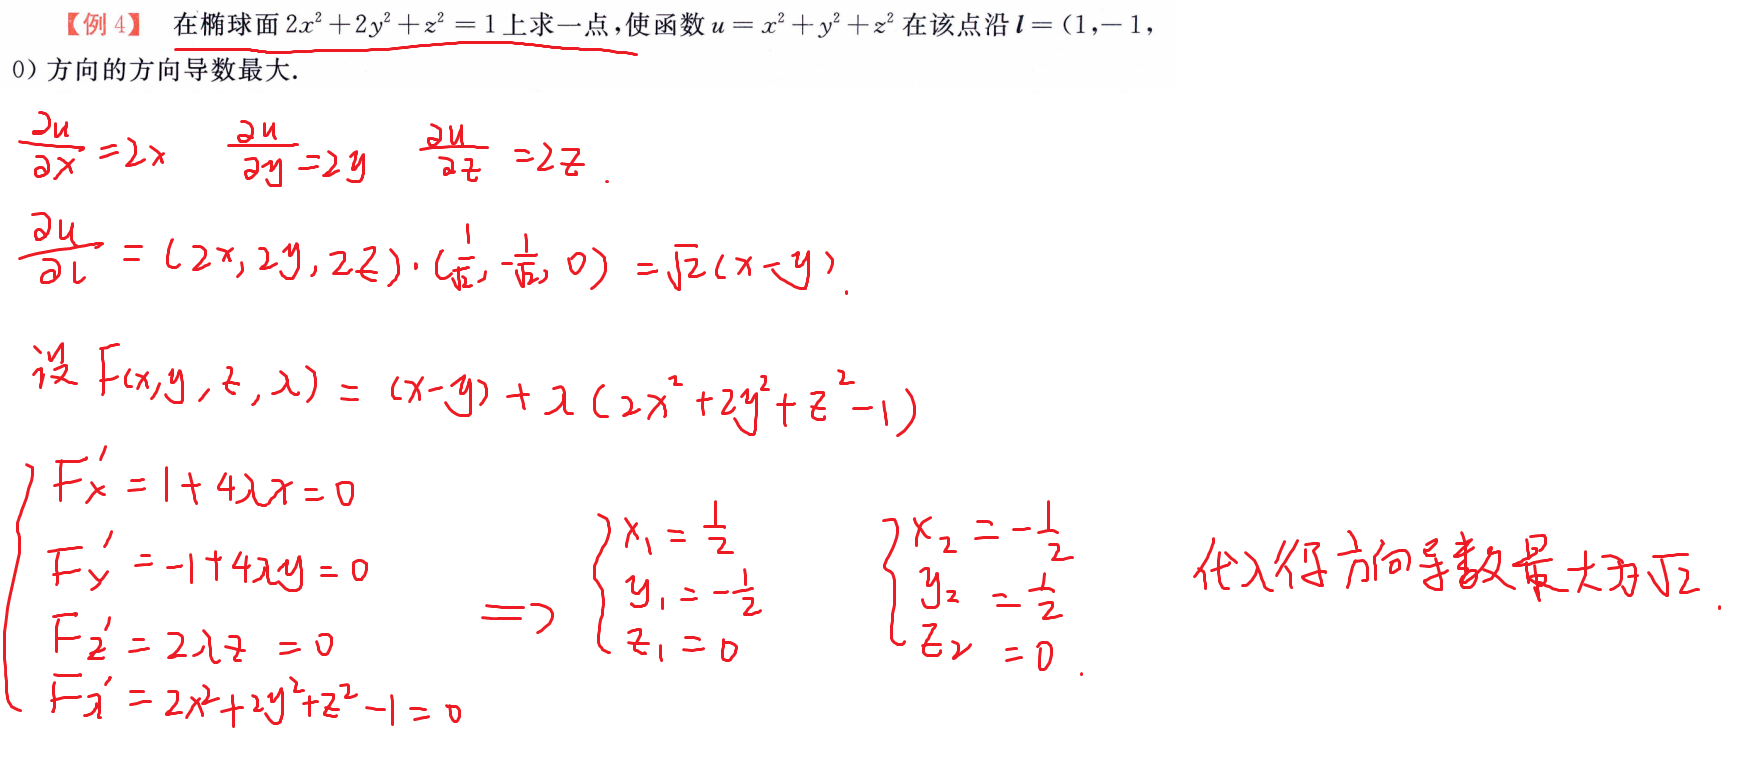 【例4】 在椭球面 2x² + 2y² + z² = 1 上求一点,使函数 u = x² + y² + z² 在该点沿 l = (1, -1,
0) 方向的方向导数最大.
∂u/∂x = 2x  ∂u/∂y = 2y  ∂u/∂z = 2z .
∂u/∂l = (2x, 2y, 2z)·(1/√2, -1/√2, 0) = √2(x-y).
设 F(x, y, z, λ) = (x-y) + λ(2x²+2y²+z²-1)
Fx' = 1 + 4λx = 0
Fy' = -1 + 4λy = 0
Fz' = 2λz = 0
Fλ' = 2x²+2y²+z²-1 = 0
⇒
x₁ = 1/2
y₁ = -1/2
z₁ = 0
x₂ = -1/2
y₂ = 1/2
z₂ = 0 .
代入得方向导数最大为√2 .